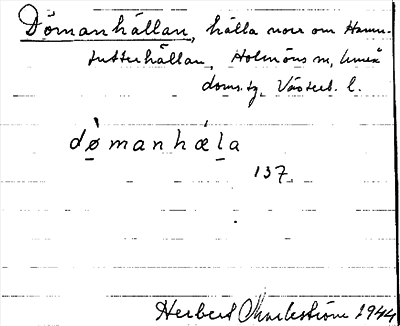 Dömanhällan, hälla norr om Hamn-
tuttuhällan, Holmöns sn, Umeå
doms.tg. Västerb. l.
dø̀manhæla
137
Herbert Markström 1944